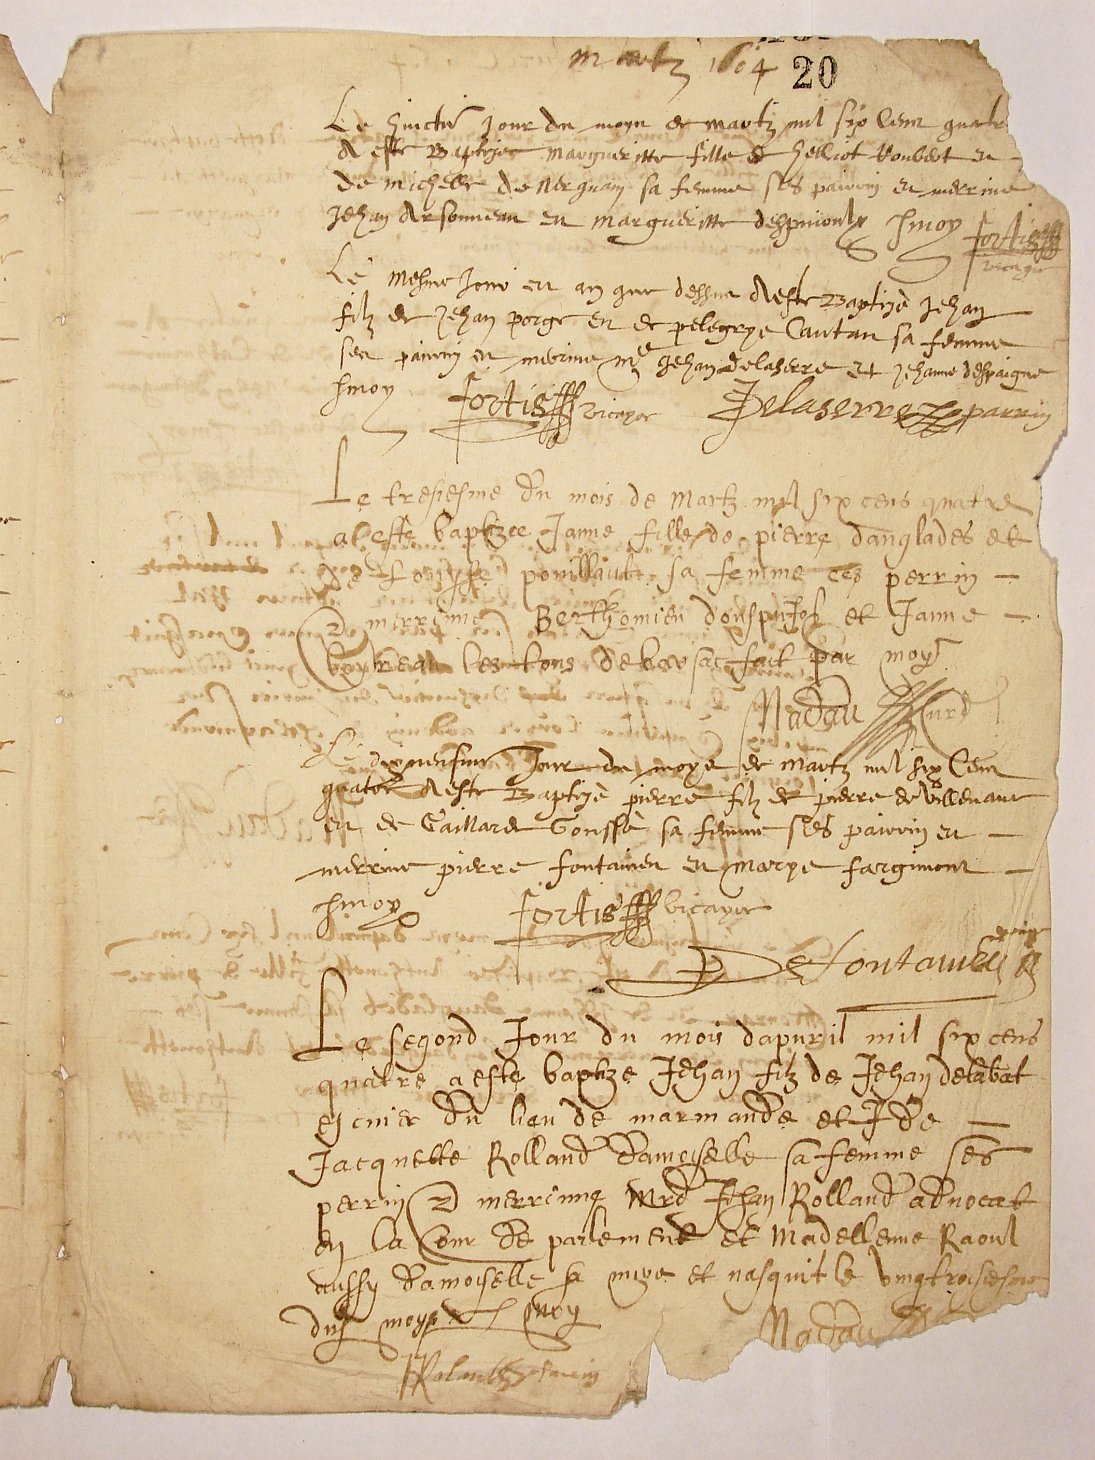 martz 1604
20
Le huictie Jour du moys de martz mil six Cens quatre
A este Baptizee margueritte fille de helliot et
de michelle de sa femme ses pairrin et merrine
Jehan Arsonneau et margueritte Pnt moy fortis
vicaire
Le mesme Jour et an que dessus A este Baptizé Jehan
filz de Jehan porge et de pelegrye Cantau sa femme
ses pairrin et merrine me Jehan Delaserre et Jehanne despaigne
Pnt moy fortis vicayre Delaserre parrin
Le tresiesme du mois de martz mil six cens quatre
a este baptzee Janne fille de pierre danglades et
de pouillault sa femme ces perrin
et merrine Berthomieu et Janne
tous de barsac fait par moy
Nadau curé
Le dixneufme Jour du moys de martz mil six Cens
quatre A este Baptizé pierre filz de pierre de Villenave
et de Gaillarde Gousse sa femme ses pairrin et
merrine pierre fontainieu et marye fargimont
Pnt moy fortis vicayre
De fontainieu
Le segond Jour du mois dapuril mil six cens
quatre a este baptze Jehan filz de Jehan delabat
du lieu de marmande et de
Jacquette Rolland damoiselle sa femme ses
perrin et merrinne Mrè Jehan Rolland aduocat
en la Cour de parlement et Madellenne Raoul
aussy damoiselle sa mere et nasquit le vingtroisiesme
dud moys moy Nadau
Rolland parrin